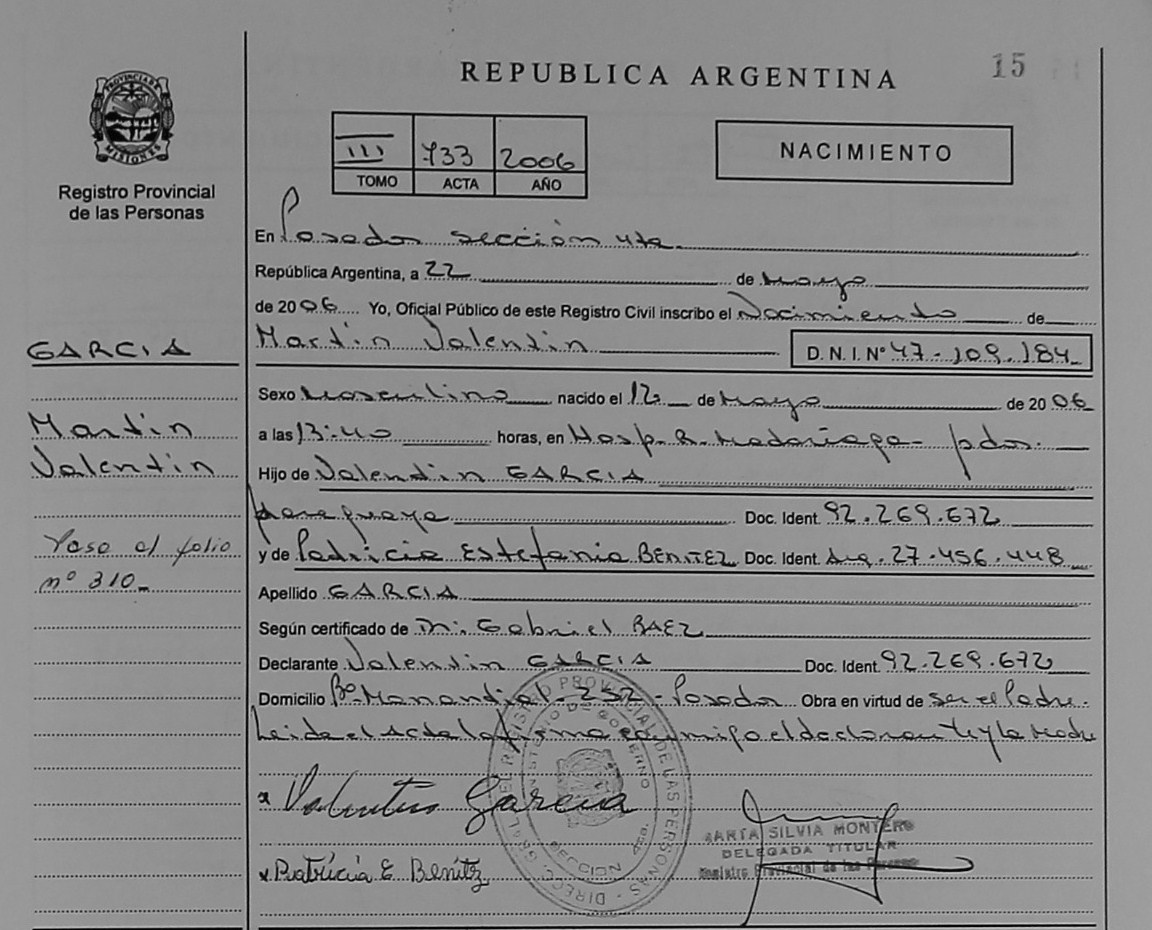 REPUBLICA ARGENTINA
15
PROVINCIA DE MISIONES
Registro Provincial
de las Personas
III 733 2006
TOMO ACTA AÑO
NACIMIENTO
En Posadas sección 4ta.
República Argentina, a 22 de Mayo
de 2006 Yo, Oficial Público de este Registro Civil inscribo el Nacimiento de
Martin Valentin D. N. I. N° 47.109.184
Sexo Masculino nacido el 12 de Mayo de 2006
a las 13:40 horas, en Hosp. R. Madariaga - pdas.
Hijo de Valentin GARCIA
paraguaya Doc. Ident. 92.269.672
y de Patricia Estefania BENITEZ Doc. Ident. Arg. 27.456.448
Apellido GARCIA
Según certificado de Dr. Gabriel BAEZ
Declarante Valentin GARCIA Doc. Ident. 92.269.672
Domicilio Bº Manantial - 252 - Posadas Obra en virtud de ser el Padre.
Leida el Acta la firma conmigo el declarante y la Madre
x Valentin Garcia
x Patricia E Benitz
MARTA SILVIA MONTERO
DELEGADA TITULAR
Registro Provincial de las Personas
GARCIA
Martin
Valentin
Pase al folio
nº 310